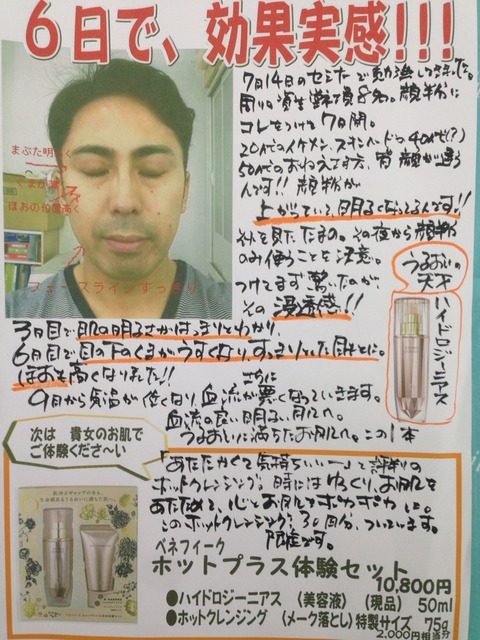 6日で、効果実感!!!
7月14日のセミナーで勉強してきました。
周りの資生堂社員8名。顔半分に
コレをつけて7日間。
20代のイケメン、スキンヘッドの40代(?)
50代のおねえさま方、皆顔が違う
んです!! 顔半分が
上がっていて、明るくなってるんです!!
それを見たたまの。その夜から顔半分
のみ使うことを決意。
つけてまず驚いたのが
その浸透感!!
まぶた明るく
くまが薄く
ほおの位置高く
フェースラインすっきり
うるおいの
天才
ハイドロジーニアス
3日目で肌の明るさがはっきりとわかり、
6日目で目の下のくまがうすくなり、すっきりとした目もとに。
ほおも高くなりました!!
さらに
9月から気温が低くなり血流が悪くなっていきます。
血流の良い明るい肌へ。
うるおいに満ちたお肌へ。この1本
次は 貴女のお肌で
ご体験くださ〜い
「あたたかくて気持ちいい〜」と評判の
ホットクレンジング。時にはゆっくり、お肌を
あたためて、心とお肌をポカポカに。
このホットクレンジング、30回分、ついています。
限定です。
ベネフィーク
ホットプラス体験セット
10,800円
●ハイドロジーニアス (美容液) (現品) 50ml
●ホットクレンジング (メーク落とし)特製サイズ 75g
2,000円相当分